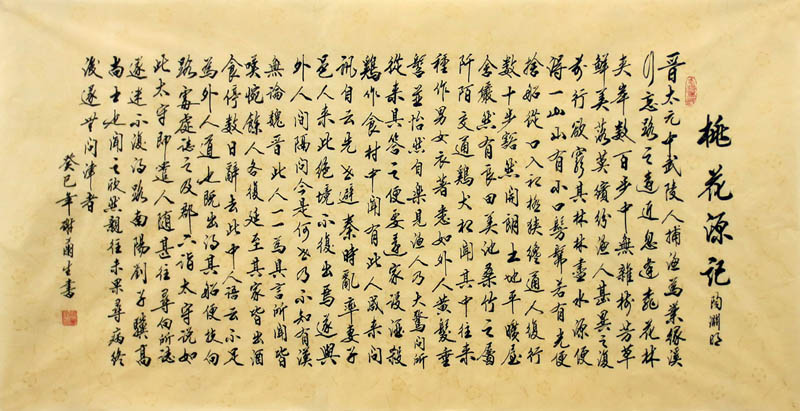 桃花源记 陶渊明
晋太元中武陵人捕渔為業緣溪
行忘路之遠近忽逢桃花林
夾岸數百步中無雜樹芳草
鮮美落英繽紛漁人甚異之復
前行欲窮其林林盡水源便
得一山山有小口髣髴若有光便
捨船從口入初極狹纔通人復行
數十步豁然開朗土地平曠屋
舍儼然有良田美池桑竹之屬
阡陌交通鷄犬相聞其中往來
種作男女衣著悉如外人黃髮垂
髫並怡然自樂見漁人乃大驚問所
從來具答之便要還家設酒殺
鷄作食村中聞有此人咸來問
訊自云先世避秦時亂率妻子
邑人來此絕境不復出焉遂與
外人間隔問今是何世乃不知有漢
無論魏晉此人一一為具言所聞皆
嘆惋餘人各復延至其家皆出酒
食停數日辭去此中人語云不足
為外人道也既出得其船便扶向
路處處誌之及郡下詣太守說如
此太守即遣人隨其往尋向所誌
遂迷不復得路南陽劉子驥高
尚士也聞之欣然親往未果尋病終
後遂無問津者
癸巳年